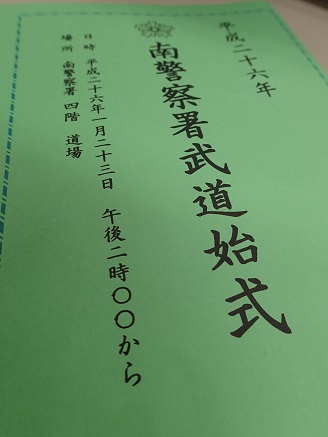 平成二十六年
南警察署武道始式
日時 平成二十六年一月二十三日 午後二時〇〇から
場所 南警察署 四階 道場